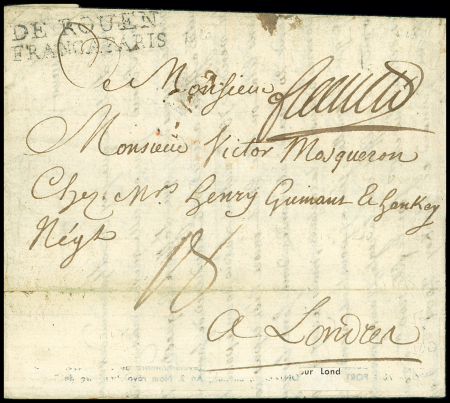 DE ROUEN
FRANC A PARIS
Monsieur
Monsieur Victor Masqueron
Chez Mrs henry Guinant & hankey
Négt
18
A Londres
our Lond